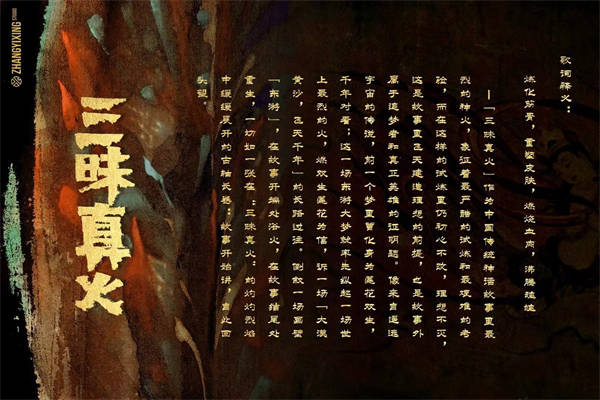 ZHANGYIXING STUDIO
歌词释义：
炼化筋骨，重塑皮肤，燃烧血肉，沸腾
—「三昧真火」作为中国传统神话故事里最
烈的神火，象征着最严酷的试炼和最艰难的考
验，而在这样的试炼里仍初心不改，理想不灭，
这是故事里飞天建造理想的前提，也是故事外
属于追梦者和真正英雄的证明题。像来自遥远
宇宙的传说，前一个梦里曾化身为莲花双生，
千年对看；这一场东游大梦就率先纵起一场世
上最烈的火，燃双生莲花为信，诉一场「大漠
黄沙，飞天千年」的长路过往，倒叙一场画壁
「东游」，在故事开端处浴火，在故事结尾处
重生，一切如一张在「三昧真火」的灼灼烈焰
中缓缓展开的古轴长卷；故事开始讲，自此回
头望
三昧真火